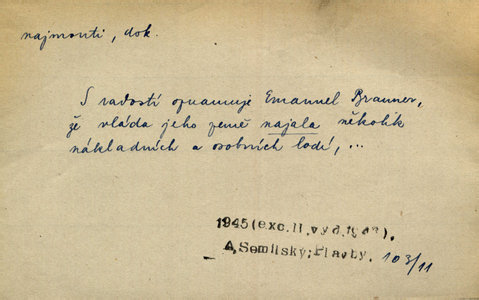 najmouti, dok.
S radostí oznamuje Emanuel Brauner,
že vláda jeho země najala několik
nákladních a osobních lodí, ...
1945(exc.II.vyd.týd.).
A,Semilský:Plavby. 103/11